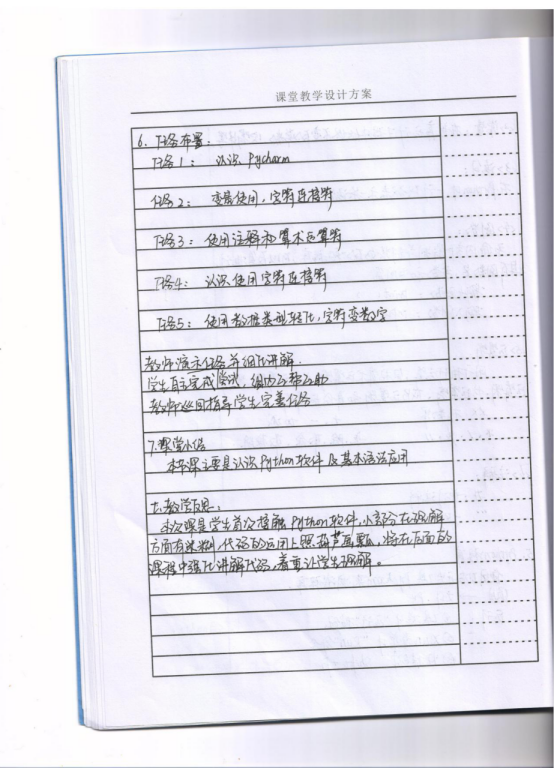 课堂教学设计方案
6. 任务布置.
任务1: 认识 Pycharm
任务2: 变量使用,字符连接符
任务3: 使用注释和算术运算符
任务4: 认识使用字符连接符
任务5: 使用数据类型转化,字符变数字
教师演示任务并细化讲解.
学生自主完成尝试,组内互帮互助
教师巡回指导学生完善任务
7.课堂小结
本节课主要是认识Python软件及基本语法应用
七.教学反思:
本次课是学生首次接触Python软件,小部分在理解
方面有些难,代码的运用上照葫芦画瓢,将在后面的
课程中强化讲解代码,着重让学生理解。